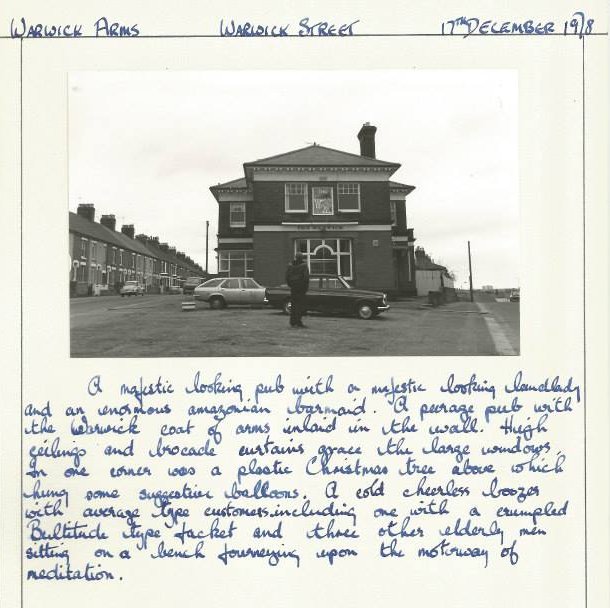 WARWICK ARMS WARWICK STREET 17TH DECEMBER 1978
A majestic looking pub with a majestic looking landlady
and an enormous amazonian barmaid. A peerage pub with
the Warwick coat of arms inlaid in the wall. High
ceilings and brocade curtains grace the large windows.
In one corner was a plastic Christmas tree above which
hung some suggestive balloons. A cold cheerless boozer
with average type customers including one with a crumpled
Bultitude type jacket and three other elderly men
sitting on a bench journeying upon the motorway of
meditation.